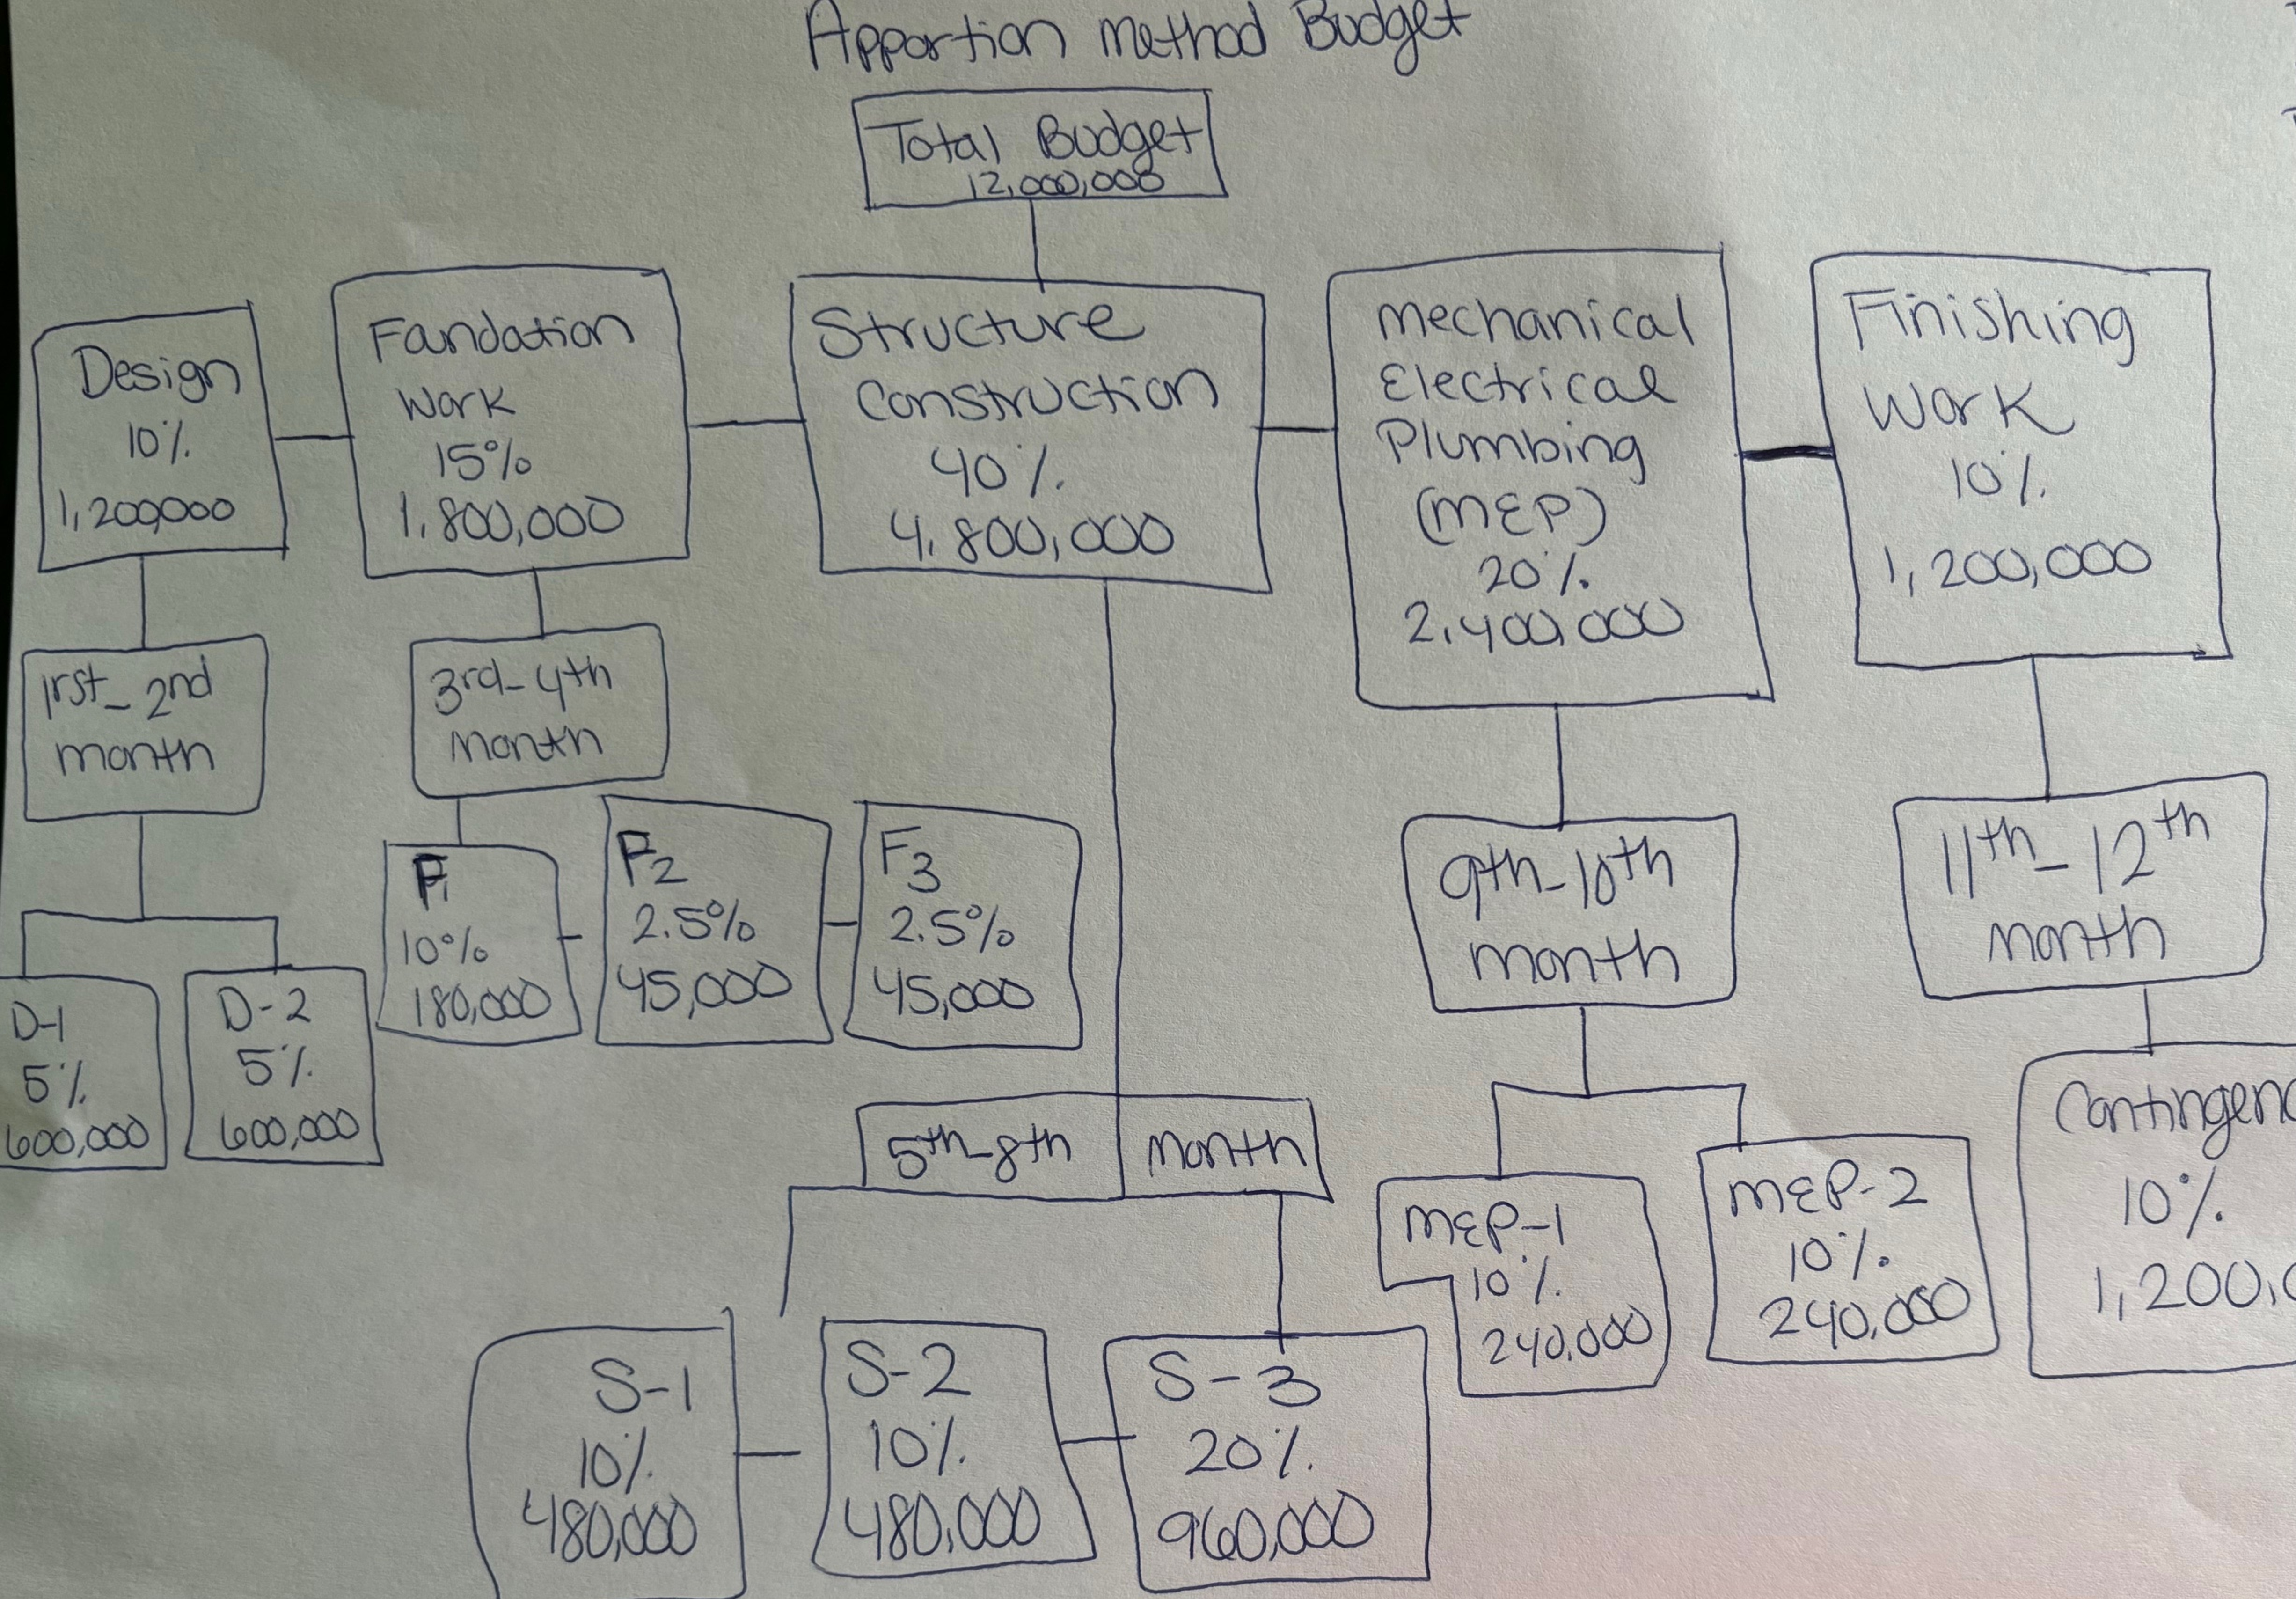 Apportion Method Budget
Total Budget
12,000,000
Design
10%
1,200,000
Foundation
Work
15%
1,800,000
Structure
Construction
40%
4,800,000
Mechanical
Electrical
Plumbing
(MEP)
20%
2,400,000
Finishing
Work
10%
1,200,000
1rst - 2nd
month
3rd - 4th
Month
5th - 8th month
9th - 10th
month
11th - 12th
month
D-1
5%
600,000
D-2
5%
600,000
F1
10%
180,000
F2
2.5%
45,000
F3
2.5%
45,000
S-1
10%
480,000
S-2
10%
480,000
S-3
20%
960,000
MEP-1
10%
240,000
MEP-2
10%
240,000
Contingenc
10%
1,200,0